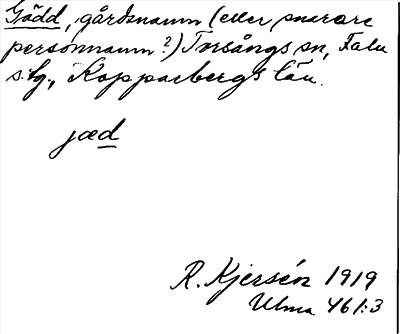 Gädd, gårdsnamn (eller snarare
personnamn?) Torsångs sn, Falu
s:lg., Kopparbergs län.
jæd
R. Kjersén 1919
Ulma 461:3